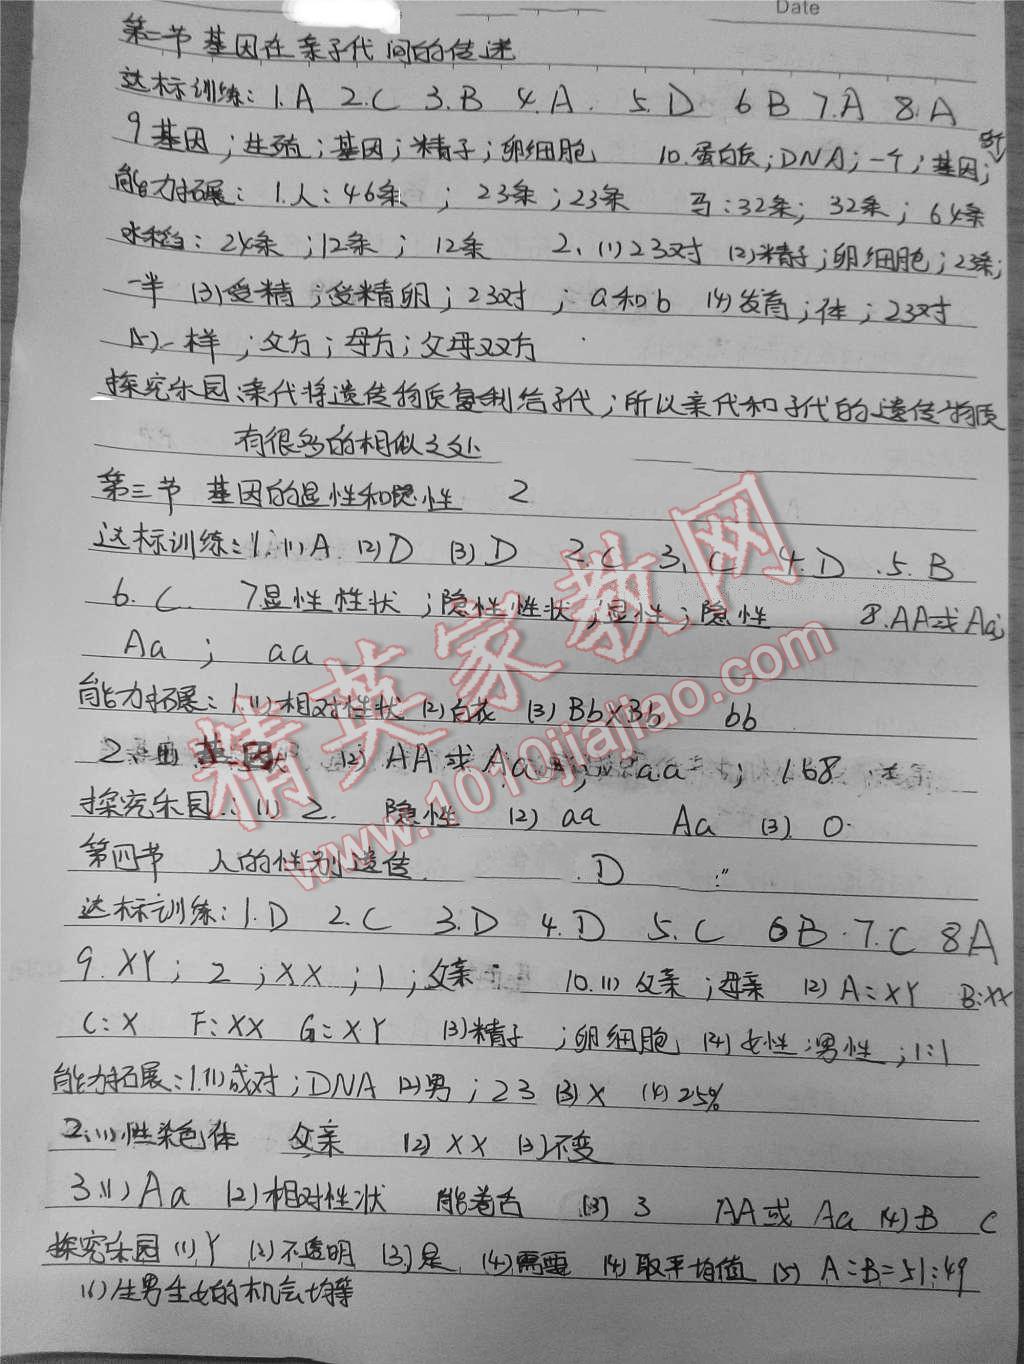 Date
第二节 基因在亲子代间的传递
达标训练: 1.A 2.C 3.B 4.A. 5.D 6 B 7.A 8.A
9 基因;生殖;基因;精子;卵细胞 10.蛋白质;DNA;一个;基因;
能力拓展: 1.人:46条;23条;23条 马:32条;32条;64条
水稻:24条;12条;12条 2、(1)23对 (2)精子;卵细胞;23条;
一半 (3)受精;受精卵;23对;a和b (4)发育;体;23对
(5)一样;父方;母方;父母双方
探究乐园:亲代将遗传物质复制给子代;所以亲代和子代的遗传物质
有很多的相似之处
第三节 基因的显性和隐性 2
达标训练:1.(1)A (2)D (3)D 2.C 3.C 4.D .5.B
6.C. 7显性性状;隐性性状;显性;隐性 8.AA或Aa;
Aa; aa
能力拓展:1.(1)相对性状 (2)白花 (3)Bb×Bb bb
2. 基因 (2)AA或Aa aa; 1.68
探究乐园:(1)2. 隐性 (2)aa Aa (3)0.
第四节 人的性别遗传 .D
达标训练:1.D 2.C 3.D 4.D 5.C 6B.7.C 8A
9.XY;2;XX;1;父亲 10.(1)父亲;母亲 (2)A:XY B:XX
C:X F:XX G:XY (3)精子;卵细胞 (4)女性;男性;1:1
能力拓展:1.(1)成对;DNA (2)男;23 (3)X (4)25%
2.(1)性染色体 父亲 (2)XX (3)不变
3.(1)Aa (2)相对性状 能卷舌 (3)3 AA或Aa (4)B C
探究乐园(1)Y (2)不透明 (3)是 (4)需要 (4)取平均值 (5)A:B=51:49
(6)生男生女的机会均等
精英家教网
www.1010jiajiao.com